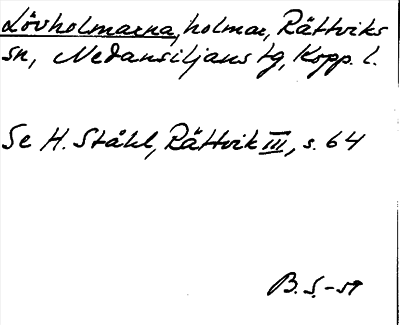 Lövholmarna, holmar, Rättviks
sn, Nedansiljans tg, Kopp. l.
Se H. Ståhl, Rättvik III, s. 64
B. S. -59